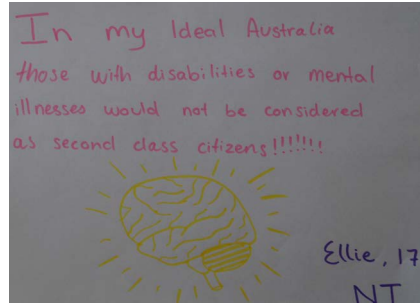 In my Ideal Australia
those with disabilities or mental
illnesses would not be considered
as second class citizens!!!!!!!
Ellie, 17
NT